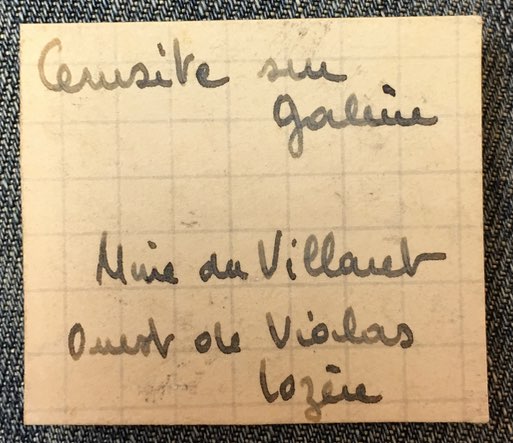 Cerusite sur
galène
Mine du Villaret
Ouest de Vialas
Lozère